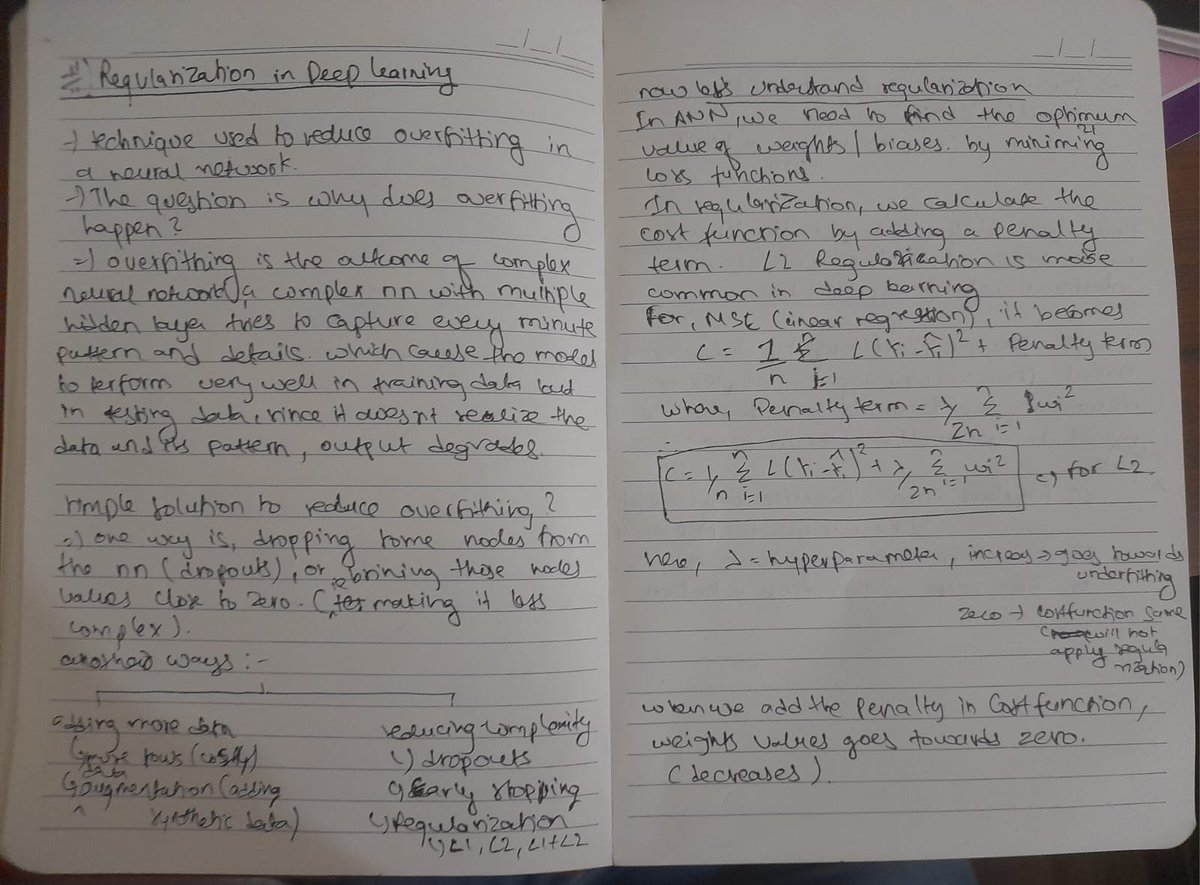 Regularization in Deep Learning
→ technique used to reduce overfitting in
a neural network.
→ The question is why does overfitting
happen?
⇒ overfitting is the outcome of complex
neural network, a complex nn with multiple
hidden layer tries to capture every minute
pattern and details. which cause the model
to perform very well in training data but
in testing data, since it doesnt realize the
data and its pattern, output degrades.
simple solution to reduce overfitting?
⇒ one way is, dropping some nodes from
the nn (dropouts), or brining those nodes
values close to zero. (making it less
complex).
another ways :-
adding more data
↳ more rows (costly)
↳ data augmentation (adding
synthetic data)
reducing complexity
↳ dropouts
↳ Early stopping
↳ Regularization
↳ L1, L2, L1+L2
now lets understand regularization
In ANN, we need to find the optimum
value of weights / biases. by minimizing
loss functions.
In regularization, we calculate the
cost function by adding a penalty
term. L2 Regularization is more
common in deep learning
for, MSE (linear regression), it becomes
C = 1/n Σ i=1 n L(Yi - Ŷi)² + Penalty term
where, Penalty term = λ/2n Σ i=1 n wi²
C = 1/n Σ i=1 n L(Yi - Ŷi)² + λ/2n Σ i=1 n wi² ↳ for L2
here, λ = hyperparameter, increas → goes towards
underfitting
zero → costfunction same
(will not
apply regula
rization)
when we add the Penalty in Cost function,
weights values goes towards zero.
(decreases).